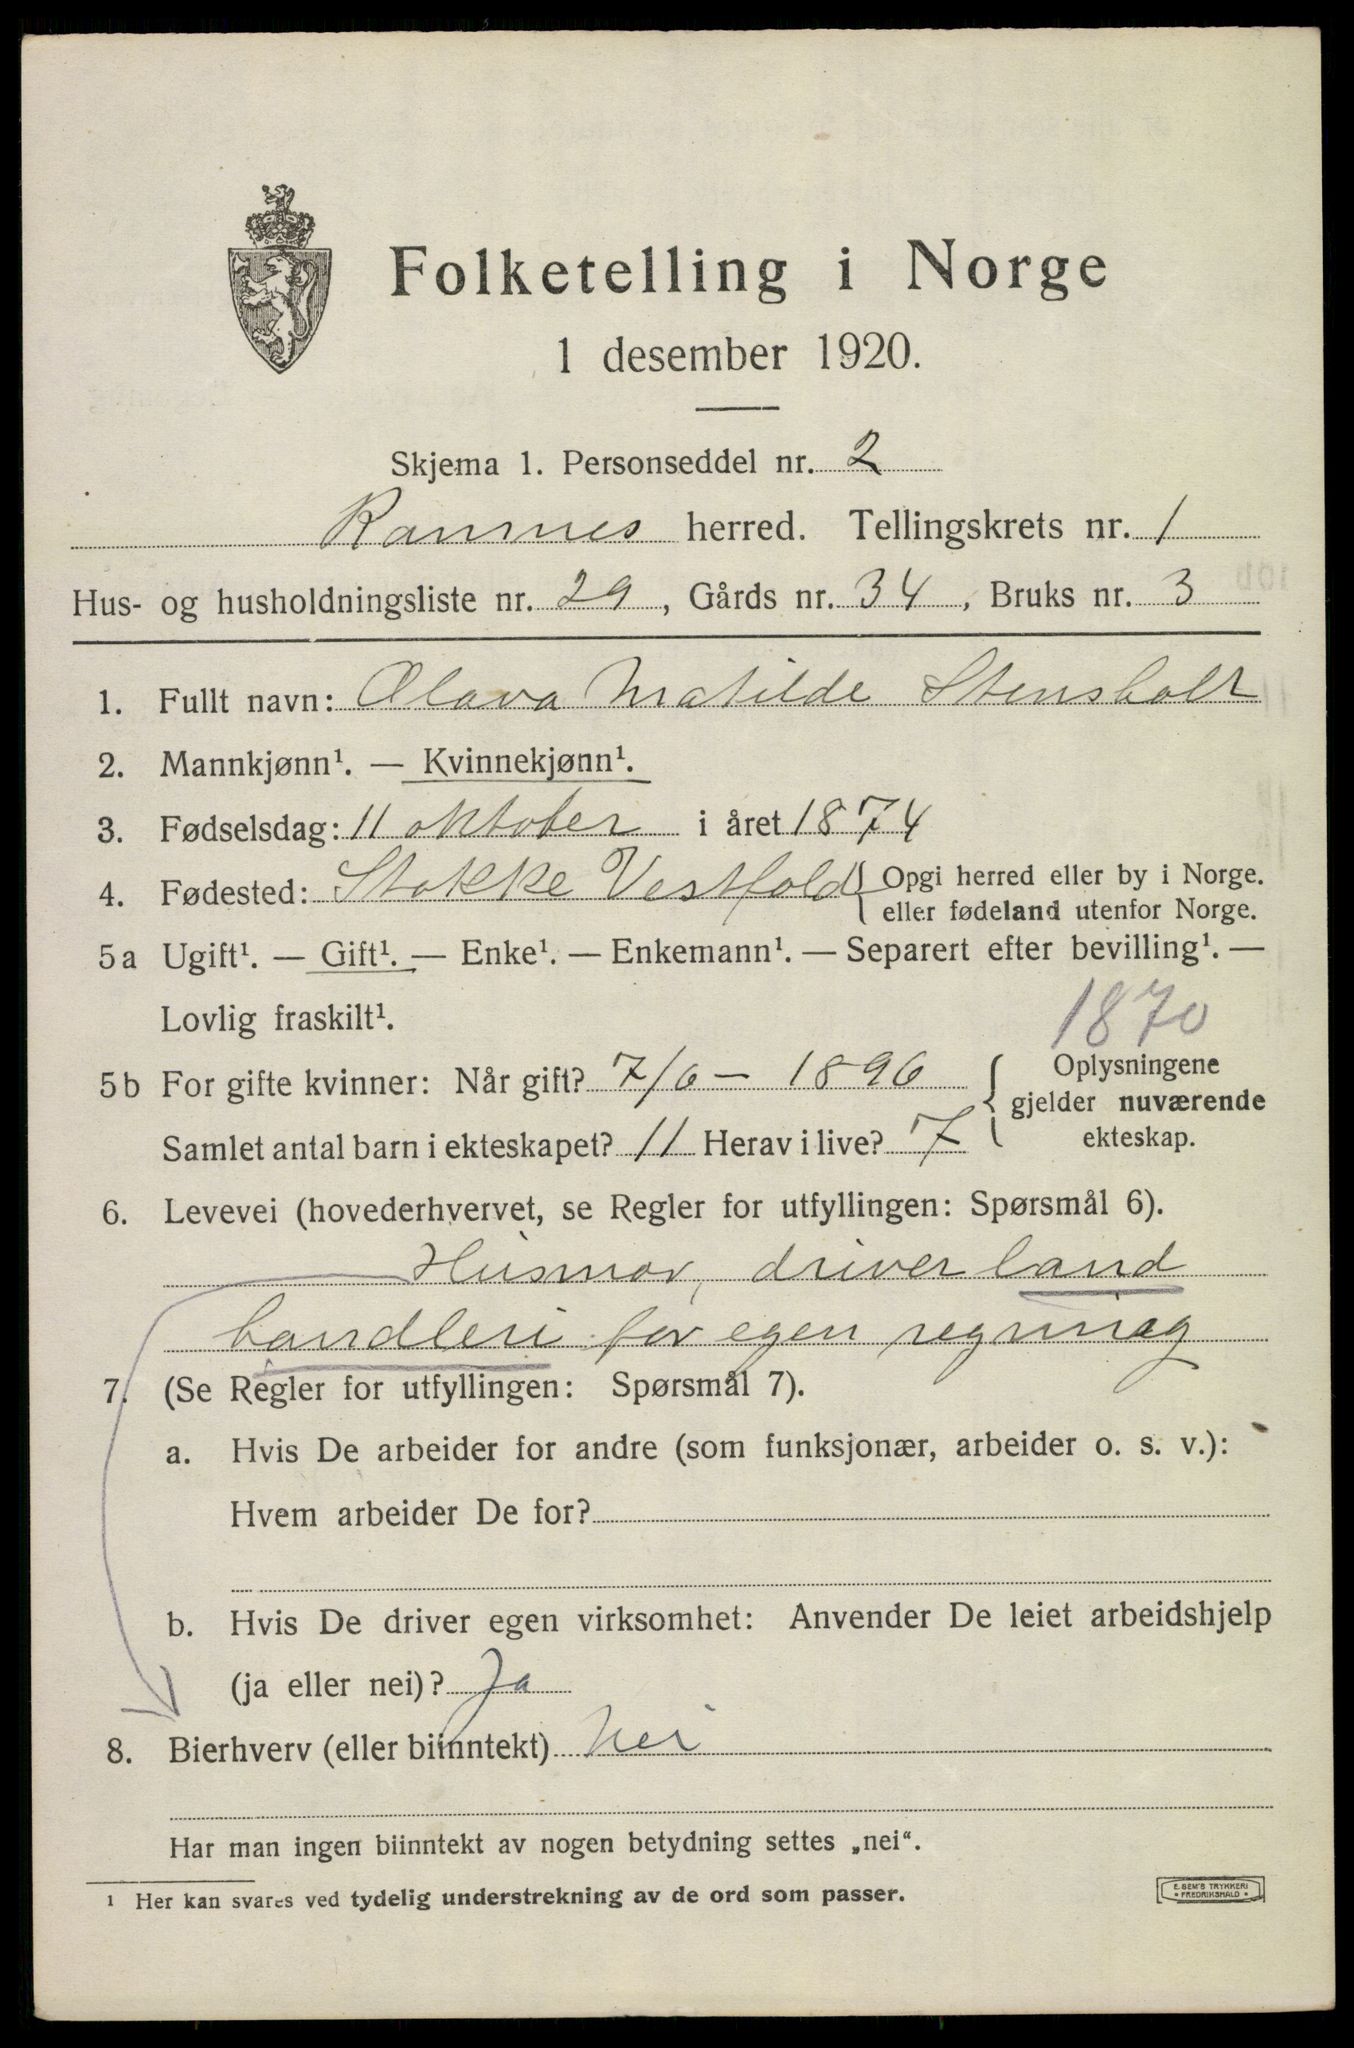 Folketelling i Norge
1 desember 1920.
Skjema 1. Personseddel nr. 2
Ramnes herred. Tellingskrets nr. 1
Hus- og husholdningsliste nr. 29, Gårds nr. 34, Bruks nr. 3
1. Fullt navn: Olava Matilde Stensholt
2. Mannkjønn¹. — Kvinnekjønn¹.
3. Fødselsdag: 11 oktober i året 1874
4. Fødested: Stokke Vestfold { Opgi herred eller by i Norge.
eller fødeland utenfor Norge.
5a Ugift¹. — Gift¹. — Enke¹. — Enkemann¹. — Separert efter bevilling¹. —
Lovlig fraskilt¹.
1870
5b For gifte kvinner: Når gift? 7/6 – 1896 { Oplysningene
gjelder nuværende
ekteskap.
Samlet antal barn i ekteskapet? 11 Herav i live? 7
6. Levevei (hovederhvervet, se Regler for utfyllingen: Spørsmål 6).
Husmor, driver land
handleri for egen regning
7. (Se Regler for utfyllingen: Spørsmål 7).
a. Hvis De arbeider for andre (som funksjonær, arbeider o. s. v.):
Hvem arbeider De for?
b. Hvis De driver egen virksomhet: Anvender De leiet arbeidshjelp
(ja eller nei)? Ja
8. Bierhverv (eller biinntekt) Nei
Har man ingen biinntekt av nogen betydning settes „nei“.
¹ Her kan svares ved tydelig understrekning av de ord som passer.
E. SEM'S TRYKKERI
FREDRIKSHALD